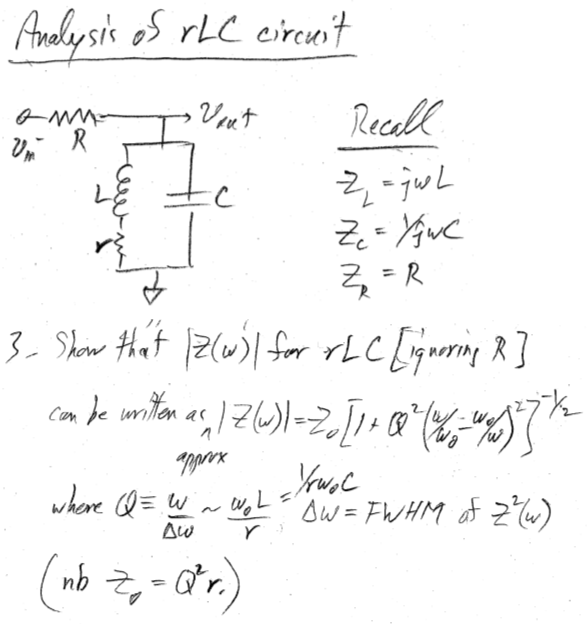 Analysis of rLC circuit
Vin R Vout
L C
r
Recall
Z_L = jωL
Z_C = 1/jωC
Z_R = R
3- Show that |Z(ω)| for rLC [ignoring R]
can be written as |Z(ω)| = Z₀ [1 + Q² (ω/ω₀ - ω₀/ω)²]^-1/2
approx
where Q ≡ ω/Δω ~ ω₀L/r = 1/rω₀C Δω = FWHM of Z²(ω)
(nb Z₀ = Q²r.)